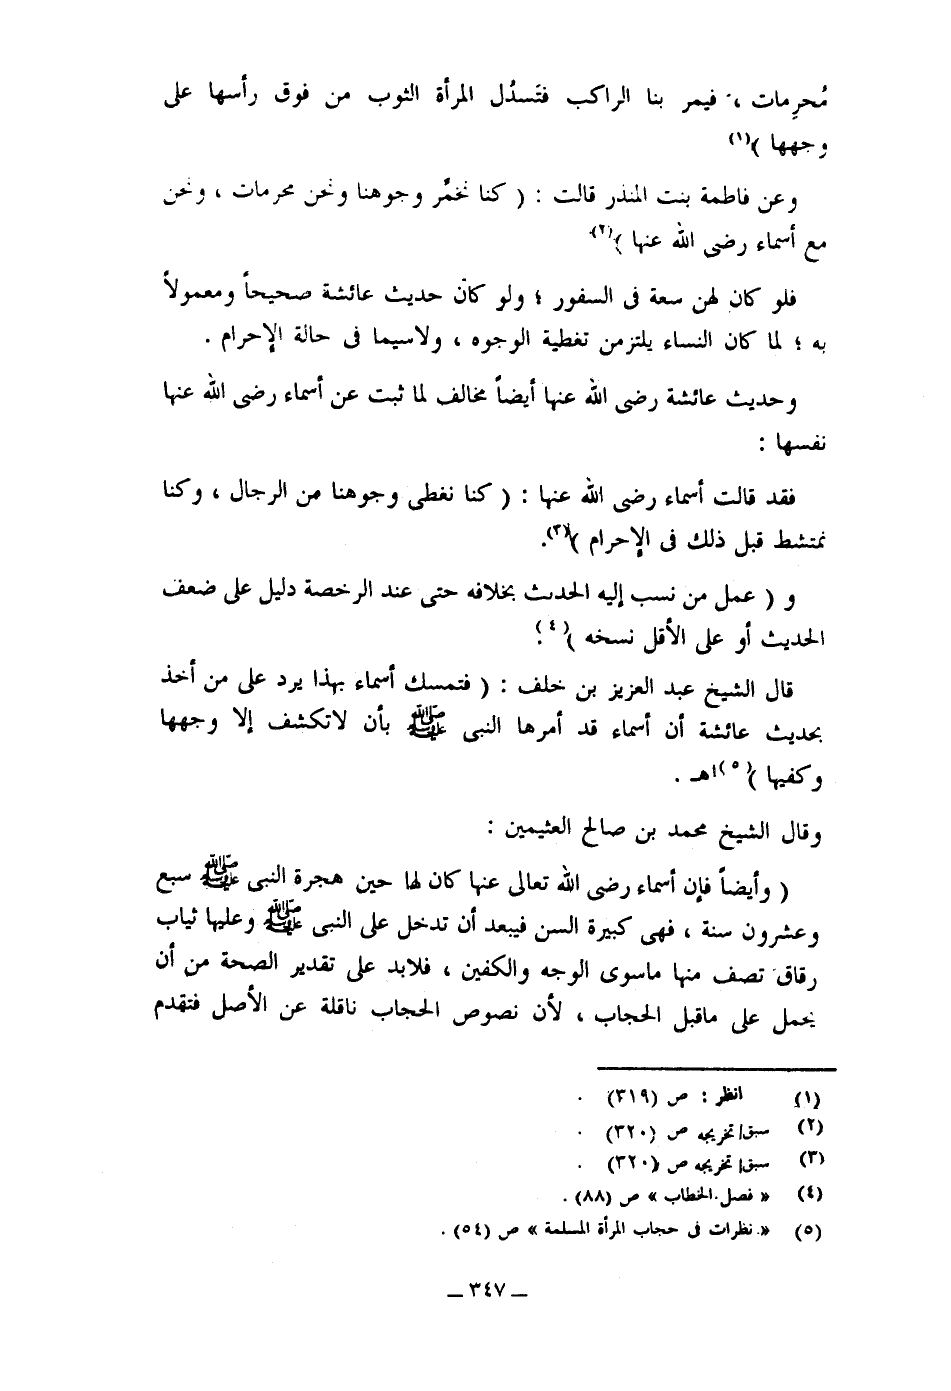 مُحرِمات ، فيمر بنا الراكب فتَسدُل المرأة الثوب من فوق رأسها على
وجهها )(١)
وعن فاطمة بنت المنذر قالت : ( كنا نُخمِّر وجوهنا ونحن محرمات ، ونحن
مع أسماء رضى الله عنها )(٢)
فلو كان لهن سعة فى السفور ؛ ولو كان حديث عائشة صحيحاً ومعمولاً
به ؛ لما كان النساء يلتزمن تغطية الوجوه ، ولاسيما فى حالة الإحرام .
وحديث عائشة رضى الله عنها أيضاً مخالف لما ثبت عن أسماء رضى الله عنها
نفسها :
فقد قالت أسماء رضى الله عنها : ( كنا نغطى وجوهنا من الرجال ، وكنا
نمتشط قبل ذلك فى الإحرام )(٣).
و ( عمل من نسب إليه الحديث بخلافه حتى عند الرخصة دليل على ضعف
الحديث أو على الأقل نسخه )(٤).
قال الشيخ عبد العزيز بن خلف : ( فتمسك أسماء بهذا يرد على من أخذ
بحديث عائشة أن أسماء قد أمرها النبى ﷺ بأن لاتكشف إلا وجهها
وكفيها )(٥)اهـ .
وقال الشيخ محمد بن صالح العثيمين :
( وأيضاً فإن أسماء رضى الله تعالى عنها كان لها حين هجرة النبى ﷺ سبع
وعشرون سنة ، فهى كبيرة السن فيبعد أن تدخل على النبى ﷺ وعليها ثياب
رقاق تصف منها ماسوى الوجه والكفين ، فلابد على تقدير الصحة من أن
يحمل على ماقبل الحجاب ، لأن نصوص الحجاب ناقلة عن الأصل فتقدم
(١) انظر : ص (٣١٩) .
(٢) سبق تخريجه ص (٣٢٠) .
(٣) سبق تخريجه ص (٣٢٠) .
(٤) « فصل الخطاب » ص (٨٨) .
(٥) « نظرات فى حجاب المرأة المسلمة » ص (٥٤) .
— ٣٤٧ —